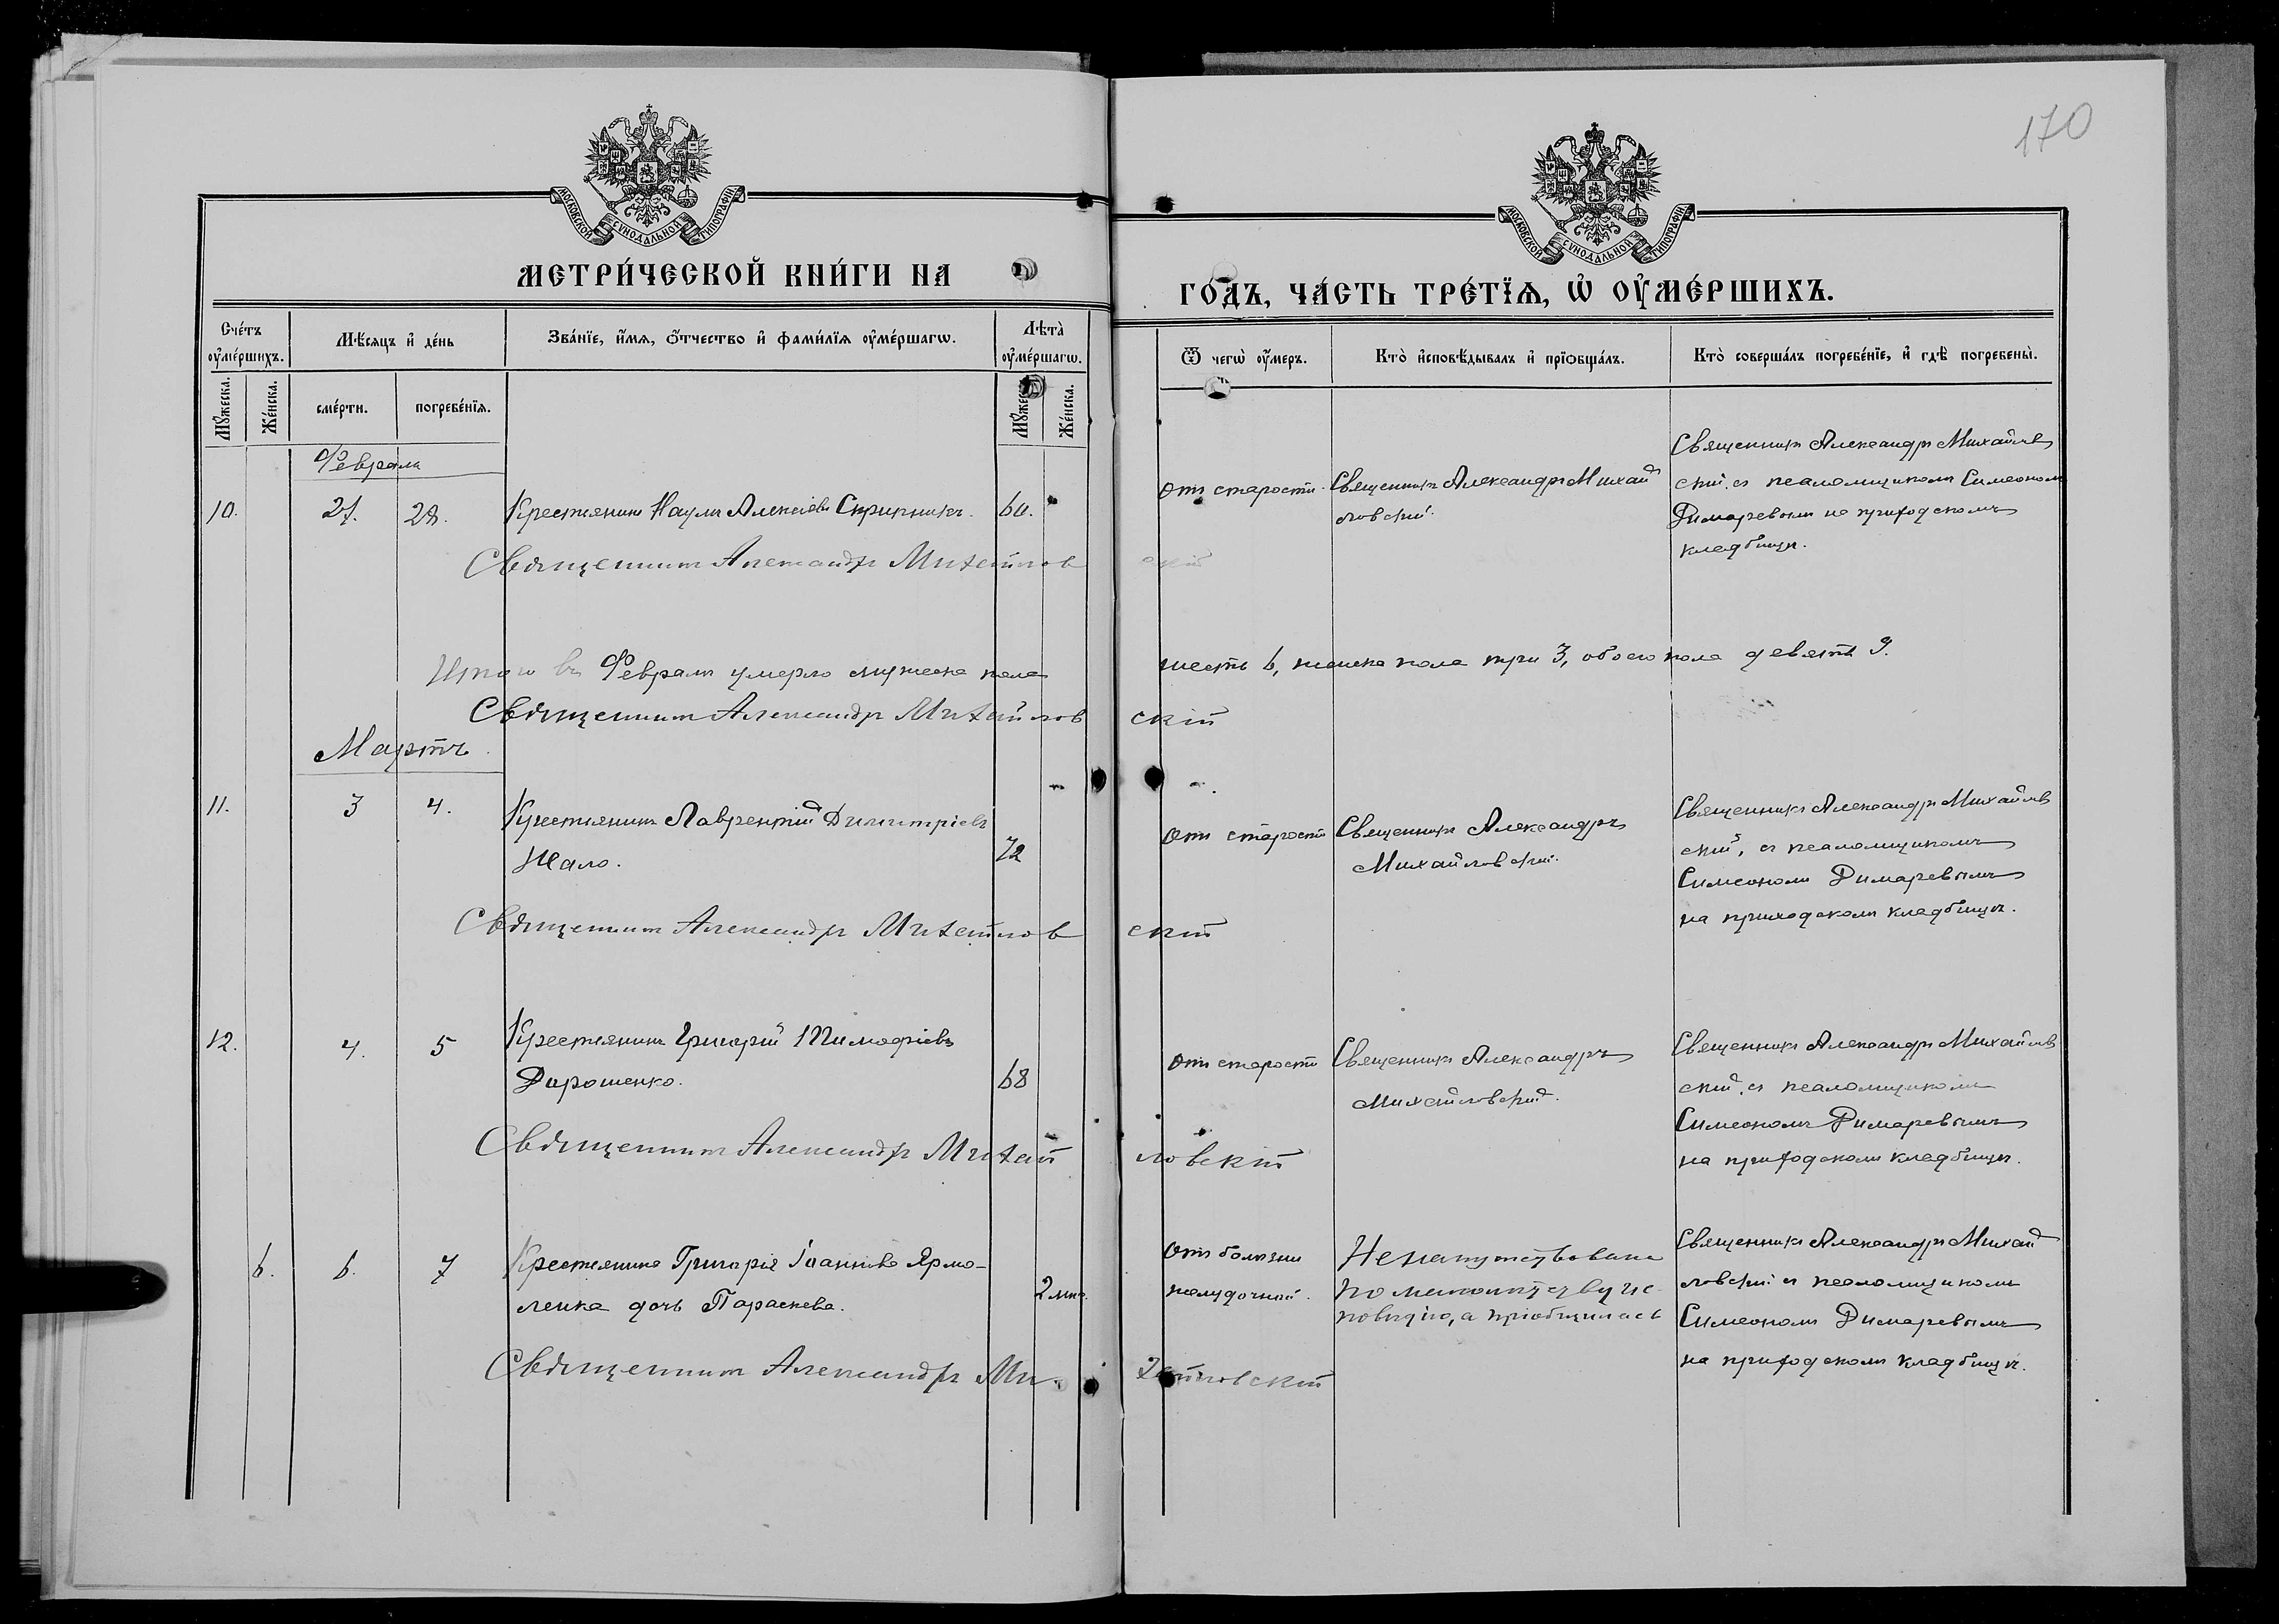 170
МОСКОВСКОЙ СѴНОДАЛЬНОЙ ТИПОГРАФІИ
МОСКОВСКОЙ СѴНОДАЛЬНОЙ ТИПОГРАФІИ
МЕТРИ́ЧЕСКОЙ КНИ́ГИ НА
ГО́ДЪ, ЧА́СТЬ ТРЕ́ТІѦ, Ѡ҆ ОУ҆МЕ́РШИХЪ.
Сче́тъ оу҆ме́ршихъ.
Мꙋ́жеска.
Же́нска.
Мѣ́сяцъ и҆ де́нь
сме́рти.
погребе́нїѧ.
Зва́нїе, и҆́мѧ, ѻ҆́тчество и҆ фами́лїѧ оу҆ме́ршагѡ.
Лѣ́та̀ оу҆ме́ршагѡ.
Мꙋ́жеска.
Же́нска.
Ѿ чегѡ̀ оу҆́меръ.
Кто̀ и҆сповѣ́дывалъ и҆ прїѡбща́лъ.
Кто̀ соверша́лъ погребе́нїе, и҆ гдѣ̀ погребены̀.
Февраль
10. 27. 28. Крестьянинъ Наумъ Алексіевъ Скрипникъ. 60.
отъ старости.
Священникъ Александръ Михай
ловскій.
Священникъ Александръ Михайлов
скій, съ псаломщикомъ Симеономъ
Димаревымъ на приходскомъ
кладбищѣ.
Священникъ Александръ Михайловскій
Итого въ Февралѣ умерло мужеска пола шесть 6, женска пола три 3, обоего пола девять 9.
Священникъ Александръ Михайловскій
Мартъ
11. 3 4. Крестьянинъ Лаврентій Димитріевъ
Шало. 72
отъ старости
Священникъ Александръ
Михайловскій.
Священникъ Александръ Михайлов
скій, съ псаломщикомъ
Симеономъ Димаревымъ
на приходскомъ кладбищѣ.
Священникъ Александръ Михайловскій
12. 4. 5 Крестьянинъ Григорій Тимофіевъ
Дорошенко. 68
отъ старости
Священникъ Александръ
Михайловскій.
Священникъ Александръ Михайлов
скій, съ псаломщикомъ
Симеономъ Димаревымъ
на приходскомъ кладбищѣ.
Священникъ Александръ Михайловскій
6. 6. 7 Крестьянина Григорія Іоаннова Ярмо-
ленка дочь Параскева. 2 мѣс.
отъ болѣзни
желудочной.
Ненапутствована
по малолѣтству ис
повѣдію, а пріобщилась
Священникъ Александръ Михай
ловскій съ псаломщикомъ
Симеономъ Димаревымъ
на приходскомъ кладбищѣ.
Священникъ Александръ Михайловскій